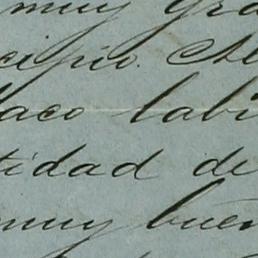 muy gra
cipio. Al
aco labi
tidad de
muy buen